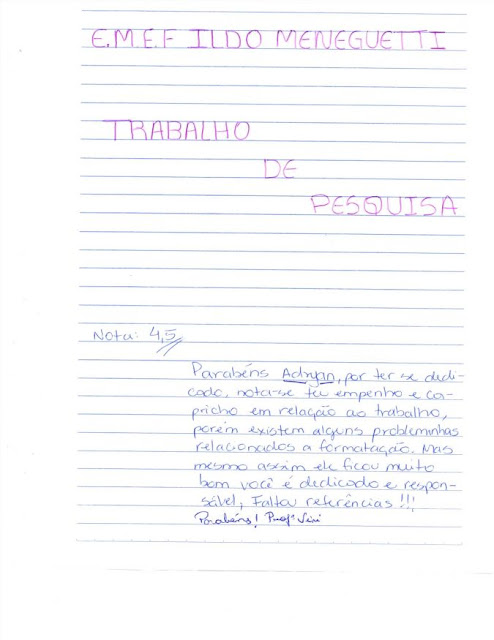 E.M.E.F ILDO MENEGUETTI
TRABALHO
DE
PESQUISA
Nota: 4,5
Parabéns Adryan, por ter se dedi-
cado, nota-se teu empenho e ca-
pricho em relação ao trabalho,
porém existem alguns probleminhas
relacionados a formatação. Mas
mesmo assim ele ficou muito
bom você é dedicado e respon-
sável, Faltou referências!!!
Parabéns! Profª